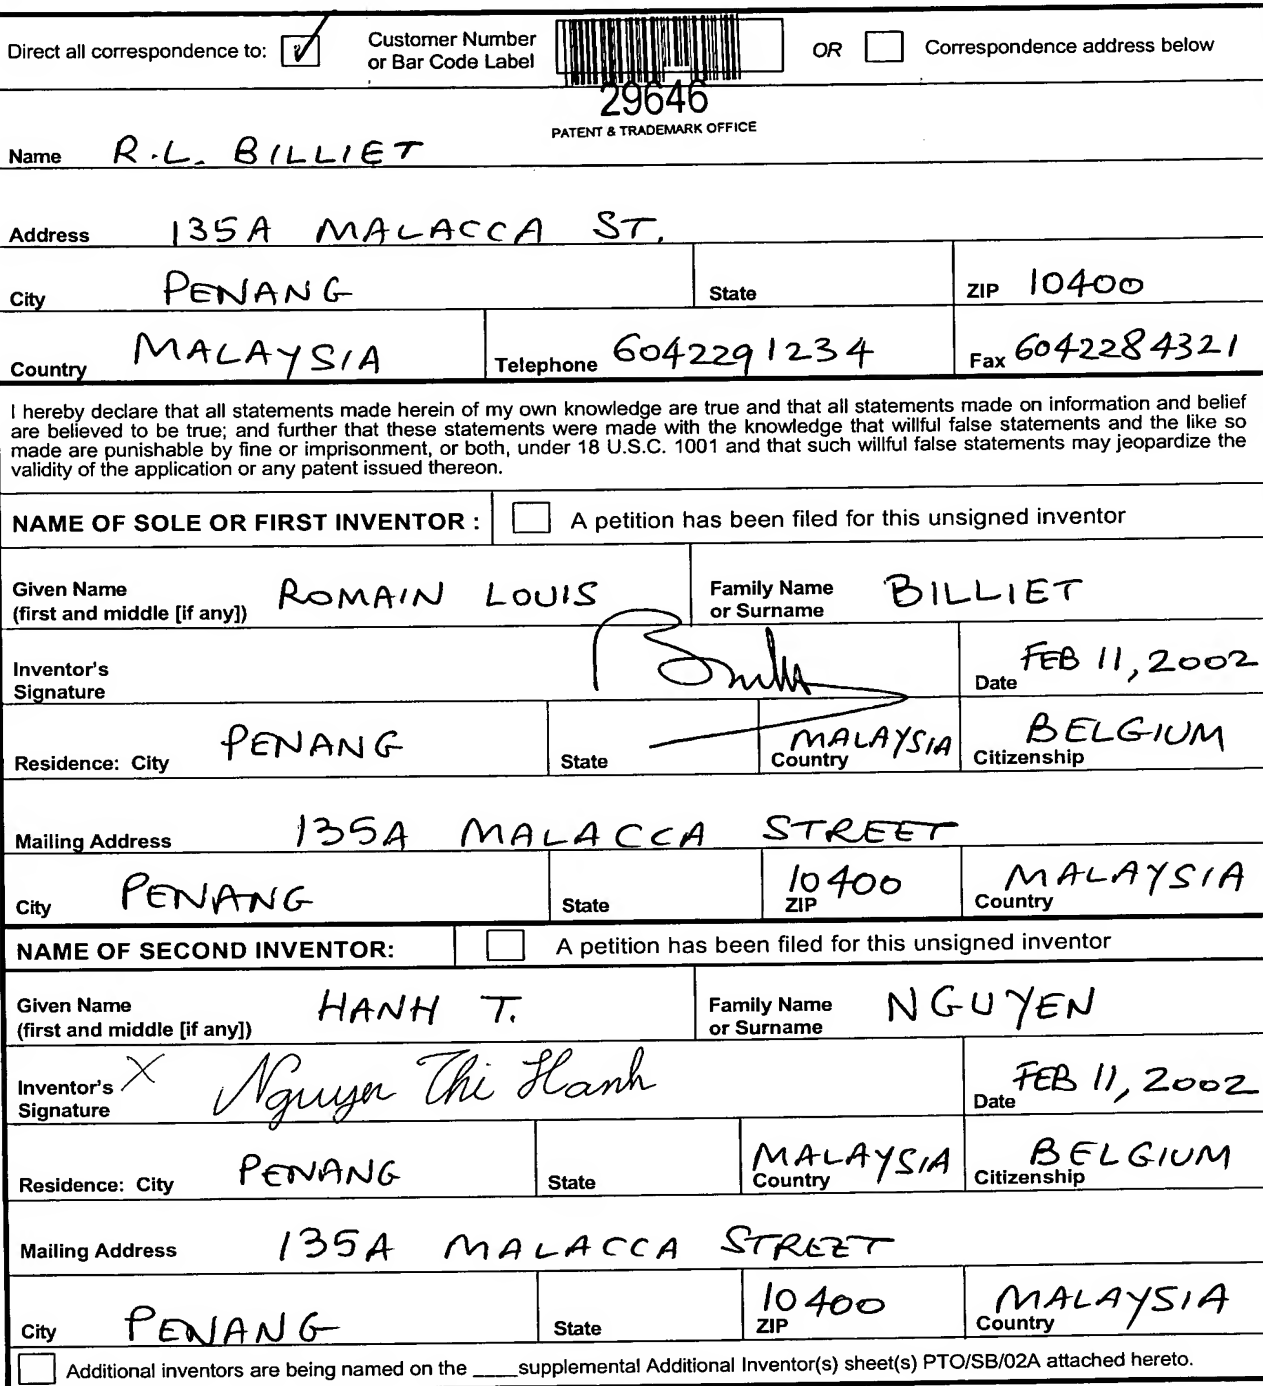 Direct all correspondence to: Customer Number or Bar Code Label OR Correspondence address below
29646
PATENT & TRADEMARK OFFICE
Name R.L. BILLIET
Address 135A MALACCA ST.
City PENANG State ZIP 10400
Country MALAYSIA Telephone 6042291234 Fax 6042284321
I hereby declare that all statements made herein of my own knowledge are true and that all statements made on information and belief
are believed to be true; and further that these statements were made with the knowledge that willful false statements and the like so
made are punishable by fine or imprisonment, or both, under 18 U.S.C. 1001 and that such willful false statements may jeopardize the
validity of the application or any patent issued thereon.
NAME OF SOLE OR FIRST INVENTOR : A petition has been filed for this unsigned inventor
Given Name (first and middle [if any]) ROMAIN LOUIS Family Name or Surname BILLIET
Inventor's Signature Date FEB 11, 2002
Residence: City PENANG State MALAYSIA Country BELGIUM Citizenship
Mailing Address 135A MALACCA STREET
City PENANG State 10400 ZIP MALAYSIA Country
NAME OF SECOND INVENTOR: A petition has been filed for this unsigned inventor
Given Name (first and middle [if any]) HANH T. Family Name or Surname NGUYEN
Inventor's Signature X Nguyen Thi Hanh Date FEB 11, 2002
Residence: City PENANG State MALAYSIA Country BELGIUM Citizenship
Mailing Address 135A MALACCA STREET
City PENANG State 10400 ZIP MALAYSIA Country
Additional inventors are being named on the ____supplemental Additional Inventor(s) sheet(s) PTO/SB/02A attached hereto.